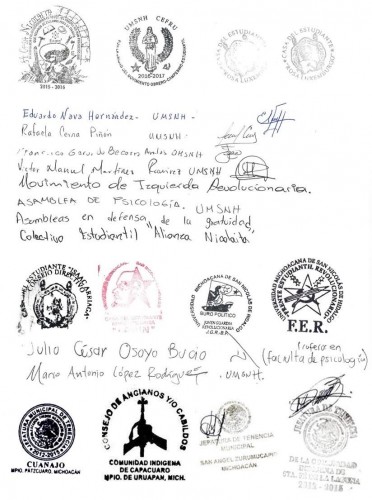 2015-2016
UMSNH CEFRU
2016-2017
CASA DEL ESTUDIANTE
ROSA LUXEM
CASA DEL ESTUDIANTE
Eduardo Nava Hernández - UMSNH
Rafaela Cerna Piñón UMSNH
Francisco UMSNH
Victor Manuel Martinez Ramirez UMSNH
Movimiento de Izquierda Revolucionaria.
ASAMBLEA DE PSICOLOGÍA. UMSNH
Asambleas en defensa de la gratuidad
Colectivo Estudiantil "Alianza Nicolaita"
CONSEJO DIRECTIVO
UNIVERSIDAD MICHOACANA DE SAN NICOLAS DE HIDALGO
BURO POLITICO
JOVEN GUARDIA
REVOLUCIONARIA
J.G.R.-B.P.
UNIVERSIDAD MICHOACANA DE SAN NICOLAS DE HIDALGO
FRENTE ESTUDIANTIL REVOLUCIONARIO
F.E.R.
Julio César Osoyo Bucio (Profesor en
(facultad de psicología)
Mario Antonio López Rodríguez UMSNH.
JEFATURA MUNICIPAL DE TENENCIA
2012-2015
CUANAJO
MPIO. PATZCUARO, MICHOACAN
CONSEJO DE ANCIANOS Y/O CABILDOS
COMUNIDAD INDIGENA
DE CAPACUARO
MPIO. DE URUAPAN, MICH.
JEFATURA DE TENENCIA
MUNICIPAL
SAN ANGEL ZURUMUCAPIO
MICHOACÁN
DE LA COMUNIDAD
INDIGENA DE
2015 - 2018